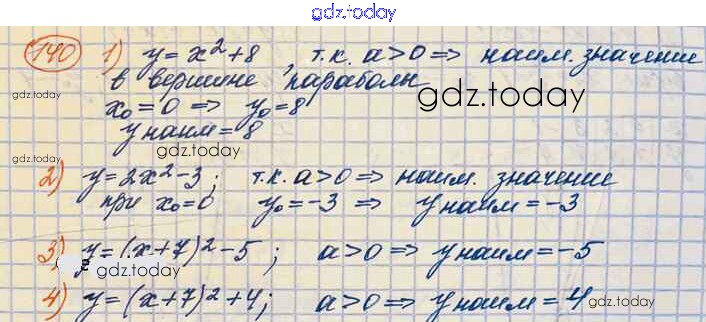 gdz.today
140 1) y = x² + 8, т.к. a > 0 => наим. значение
gdz.today
в вершине параболы
gdz.today
x₀ = 0 => y₀ = 8
y наим = 8
gdz.today
gdz.today
2) y = 2x² - 3; т.к. a > 0 => наим. значение
при x₀ = 0 y₀ = -3 => y наим = -3
gdz.today
3) y = (x + 7)² - 5; a > 0 => y наим = -5
gdz.today
4) y = (x + 7)² + 4; a > 0 => y наим = 4
gdz.today